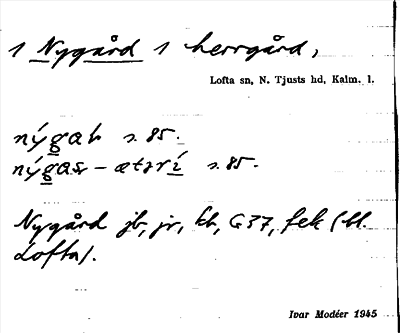 1 Nygård 1 herrgård,
Lofta sn, N. Tjusts hd, Kalm. l.
nýgaʈ s. 85.
nýgas-ætərí s. 85.
Nygård jb, jr, kb, G37, fek (bl.
Lofta).
Ivar Modéer 1945